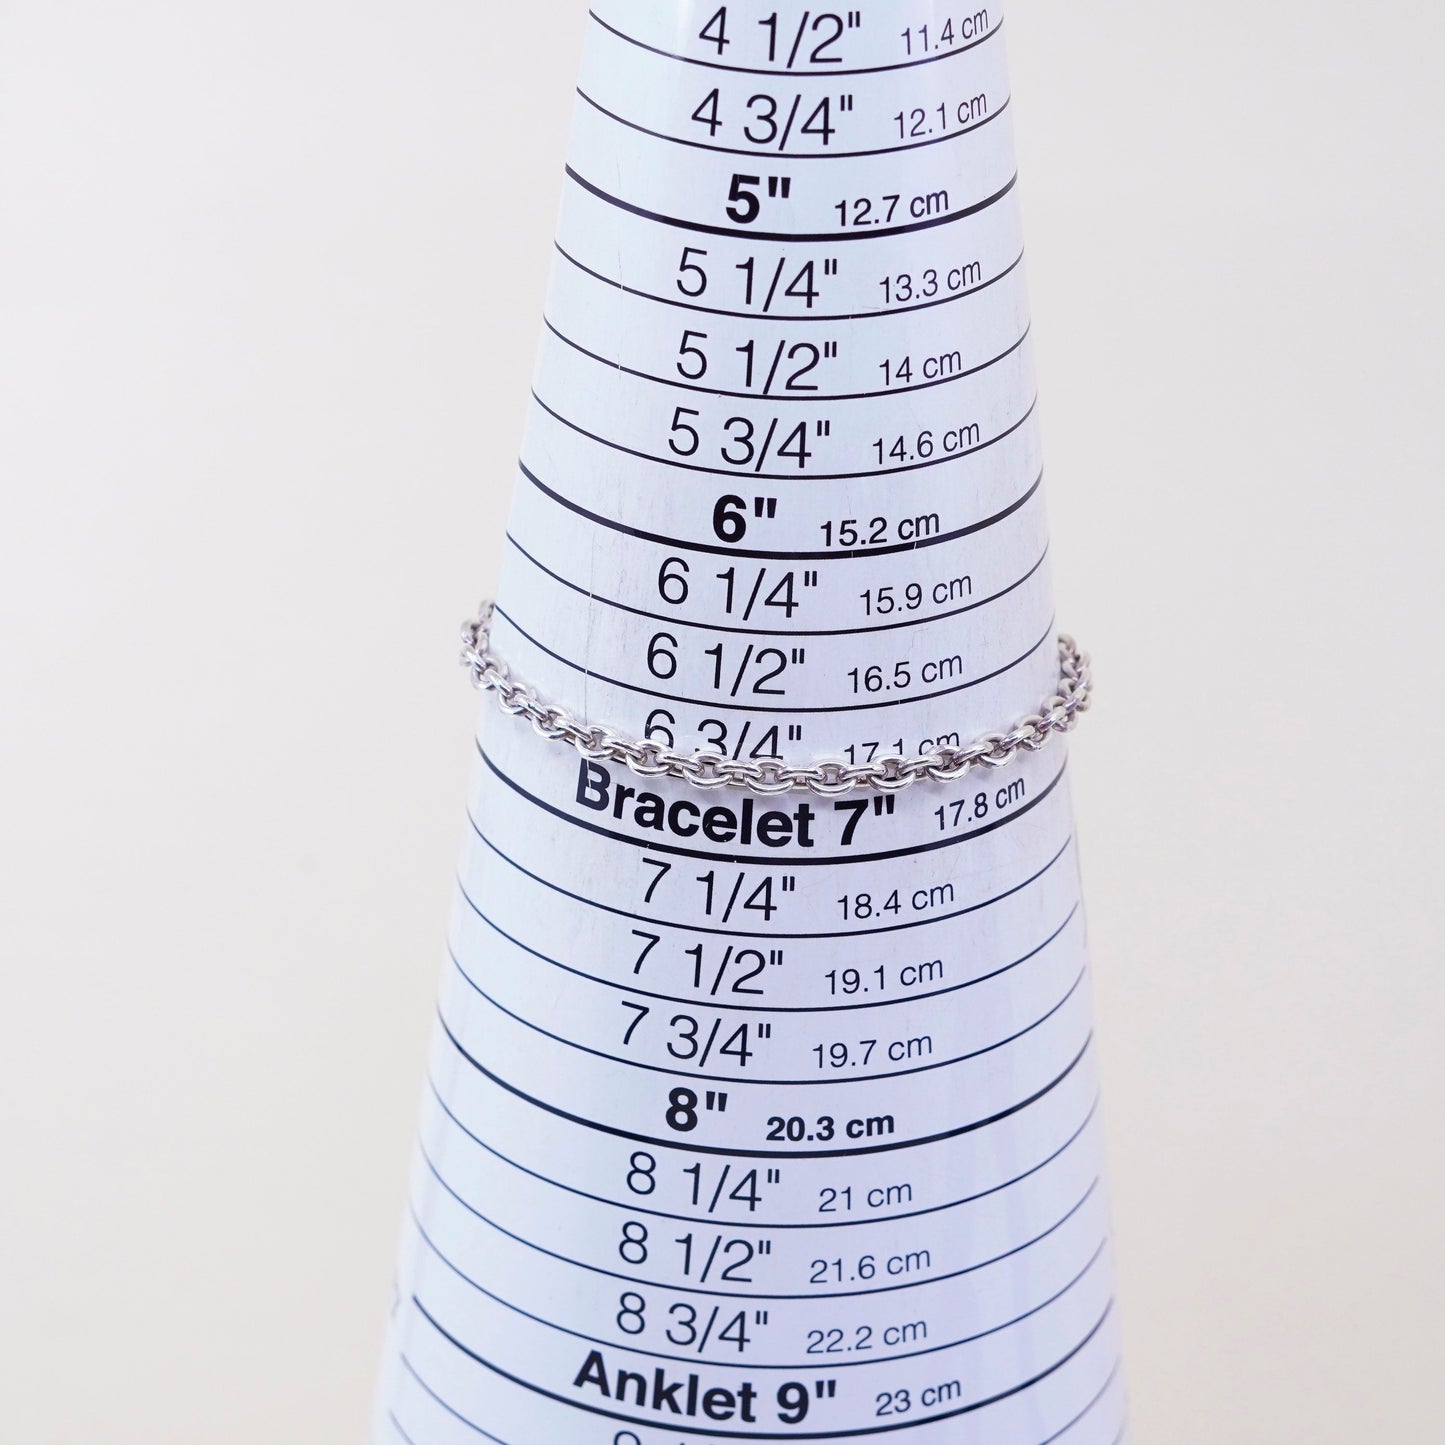 4 1/2" 11.4 cm
4 3/4" 12.1 cm
5" 12.7 cm
5 1/4" 13.3 cm
5 1/2" 14 cm
5 3/4" 14.6 cm
6" 15.2 cm
6 1/4" 15.9 cm
6 1/2" 16.5 cm
6 3/4" 17.1 cm
Bracelet 7" 17.8 cm
7 1/4" 18.4 cm
7 1/2" 19.1 cm
7 3/4" 19.7 cm
8" 20.3 cm
8 1/4" 21 cm
8 1/2" 21.6 cm
8 3/4" 22.2 cm
Anklet 9" 23 cm